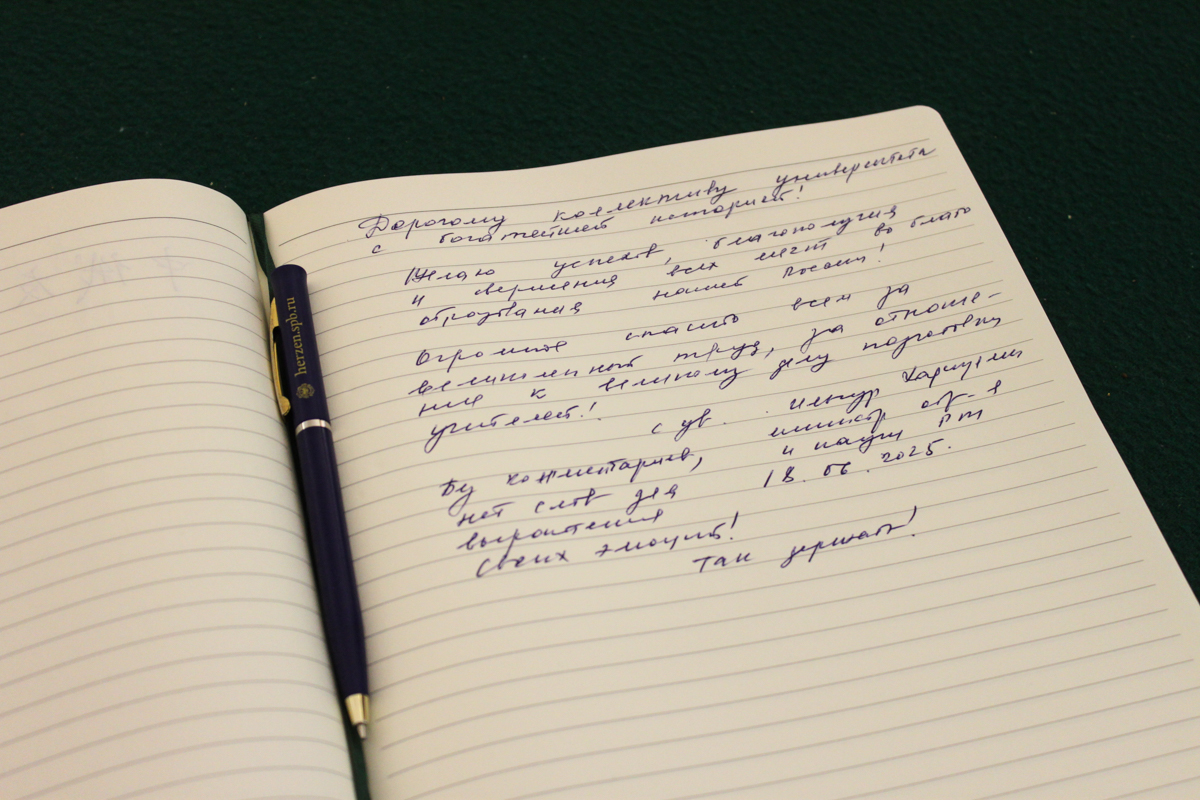 herzen.spb.ru
Дорогому коллективу университета
с богатейшей историей!
Желаю успехов, благополучия
и свершения всех мечт во благо
образования нашей России!
Огромное спасибо всем за
великолепный труд, за отноше-
ние к великому делу подготовки
учителей!
с ув. Ильсур Хадиуллин
министр обр-я
и науки РТ
18.06.2025.
Без комментариев,
нет слов для
выражения
своих эмоций!
Так держать!